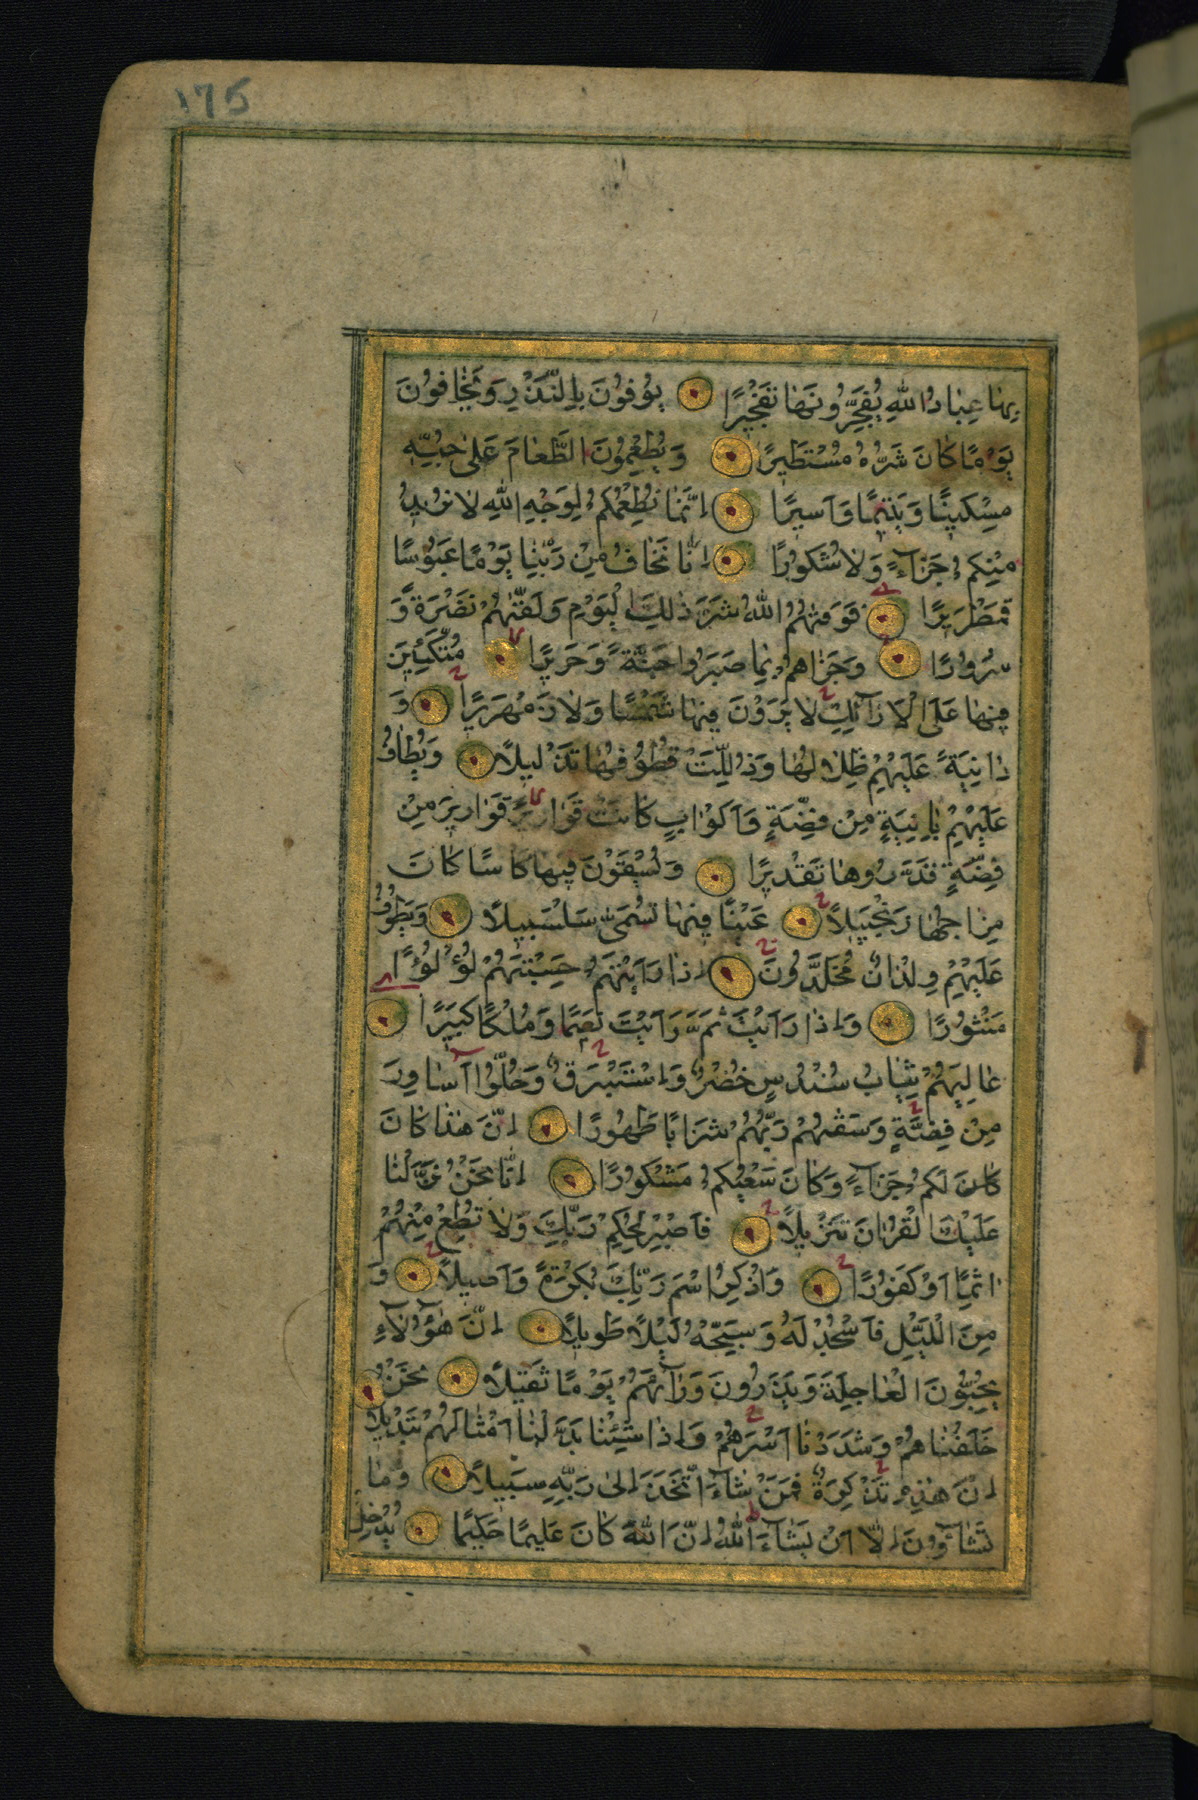 ١٢٥
بِهٰا عِبٰادُ اللّٰهِ يُفَجِّرُونَهٰا تَفْجٖيرًا يُوفُونَ بِالنَّذْرِ وَيَخٰافُونَ
يَوْمًا كٰانَ شَرُّهُ مُسْتَطٖيرًا وَيُطْعِمُونَ الطَّعٰامَ عَلٰى حُبِّهٖ
مِسْكٖينًا وَيَتٖيمًا وَاَسٖيرًا اِنَّمٰا نُطْعِمُكُمْ لِوَجْهِ اللّٰهِ لٰا نُرٖيدُ
مِنْكُمْ جَزٰآءً وَلٰا شُكُورًا اِنّٰا نَخٰافُ مِنْ رَبِّنٰا يَوْمًا عَبُوسًا
قَمْطَرٖيرًا فَوَقٰىهُمُ اللّٰهُ شَرَّ ذٰلِكَ الْيَوْمِ وَلَقّٰىهُمْ نَضْرَةً وَ
سُرُورًا وَجَزٰاهُمْ بِمٰا صَبَرُوا جَنَّةً وَحَرٖيرًا مُتَّكِـٖٔينَ
فٖيهٰا عَلَى الْاَرٰآئِكِ لٰا يَرَوْنَ فٖيهٰا شَمْسًا وَلٰا زَمْهَرٖيرًا وَ
دٰانِيَةً عَلَيْهِمْ ظِلٰالُهٰا وَذُلِّلَتْ قُطُوفُهٰا تَذْلٖيلًا وَيُطٰافُ
عَلَيْهِمْ بِاٰنِيَةٍ مِنْ فِضَّةٍ وَاَكْوٰابٍ كٰانَتْ قَوٰارٖيرَ قَوٰارٖيرَ مِنْ
فِضَّةٍ قَدَّرُوهٰا تَقْدٖيرًا وَيُسْقَوْنَ فٖيهٰا كَاْسًا كٰانَ
مِزٰاجُهٰا زَنْجَبٖيلًا عَيْنًا فٖيهٰا تُسَمّٰى سَلْسَبٖيلًا وَيَطُوفُ
عَلَيْهِمْ وِلْدٰانٌ مُخَلَّدُونَ اِذٰا رَاَيْتَهُمْ حَسِبْتَهُمْ لُؤْلُؤًا
مَنْثُورًا وَاِذٰا رَاَيْتَ ثَمَّ رَاَيْتَ نَعٖيمًا وَمُلْكًا كَبٖيرًا
عٰالِيَهُمْ ثِيٰابُ سُنْدُسٍ خُضْرٌ وَاِسْتَبْرَقٌ وَحُلُّوا اَسٰاوِرَ
مِنْ فِضَّةٍ وَسَقٰىهُمْ رَبُّهُمْ شَرٰابًا طَهُورًا اِنَّ هٰذٰا كٰانَ
كٰانَ لَكُمْ جَزٰآءً وَكٰانَ سَعْيُكُمْ مَشْكُورًا اِنّٰا نَحْنُ نَزَّلْنٰا
عَلَيْكَ الْقُرْاٰنَ تَنْزٖيلًا فَاصْبِرْ لِحُكْمِ رَبِّكَ وَلٰا تُطِعْ مِنْهُمْ
اٰثِمًا اَوْ كَفُورًا وَاذْكُرِ اسْمَ رَبِّكَ بُكْرَةً وَاَصٖيلًا وَ
مِنَ الَّيْلِ فَاسْجُدْ لَهُ وَسَبِّحْهُ لَيْلًا طَوٖيلًا اِنَّ هٰؤُلٰآءِ
يُحِبُّونَ الْعٰاجِلَةَ وَيَذَرُونَ وَرٰآئَهُمْ يَوْمًا ثَقٖيلًا نَحْنُ
خَلَقْنٰاهُمْ وَشَدَدْنٰا اَسْرَهُمْ وَاِذٰا شِئْنٰا بَدَّلْنٰا اَمْثٰالَهُمْ تَبْدٖيلًا
اِنَّ هٰذِهٖ تَذْكِرَةٌ فَمَنْ شٰآءَ اتَّخَذَ اِلٰى رَبِّهٖ سَبٖيلًا وَمٰا
تَشٰآؤُنَ اِلّٰا اَنْ يَشٰآءَ اللّٰهُ اِنَّ اللّٰهَ كٰانَ عَلٖيمًا حَكٖيمًا يُدْخِلُ